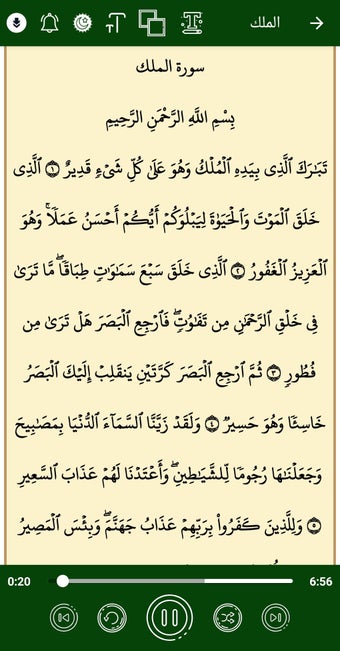 الملك
سورة الملك
بِسْمِ اللَّهِ الرَّحْمَٰنِ الرَّحِيمِ
تَبَٰرَكَ ٱلَّذِى بِيَدِهِ ٱلْمُلْكُ وَهُوَ عَلَىٰ كُلِّ شَىْءٍ قَدِيرٌ ۝١ ٱلَّذِى
خَلَقَ ٱلْمَوْتَ وَٱلْحَيَوٰةَ لِيَبْلُوَكُمْ أَيُّكُمْ أَحْسَنُ عَمَلًا ۚ وَهُوَ
ٱلْعَزِيزُ ٱلْغَفُورُ ۝٢ ٱلَّذِى خَلَقَ سَبْعَ سَمَٰوَٰتٍ طِبَاقًا ۖ مَّا تَرَىٰ
فِى خَلْقِ ٱلرَّحْمَٰنِ مِن تَفَٰوُتٍ ۖ فَٱرْجِعِ ٱلْبَصَرَ هَلْ تَرَىٰ مِن
فُطُورٍ ۝٣ ثُمَّ ٱرْجِعِ ٱلْبَصَرَ كَرَّتَيْنِ يَنقَلِبْ إِلَيْكَ ٱلْبَصَرُ
خَاسِئًا وَهُوَ حَسِيرٌ ۝٤ وَلَقَدْ زَيَّنَّا ٱلسَّمَآءَ ٱلدُّنْيَا بِمَصَٰبِيحَ
وَجَعَلْنَٰهَا رُجُومًا لِّلشَّيَٰطِينِ ۖ وَأَعْتَدْنَا لَهُمْ عَذَابَ ٱلسَّعِيرِ
۝٥ وَلِلَّذِينَ كَفَرُوا۟ بِرَبِّهِمْ عَذَابُ جَهَنَّمَ ۖ وَبِئْسَ ٱلْمَصِيرُ
0:20 6:56